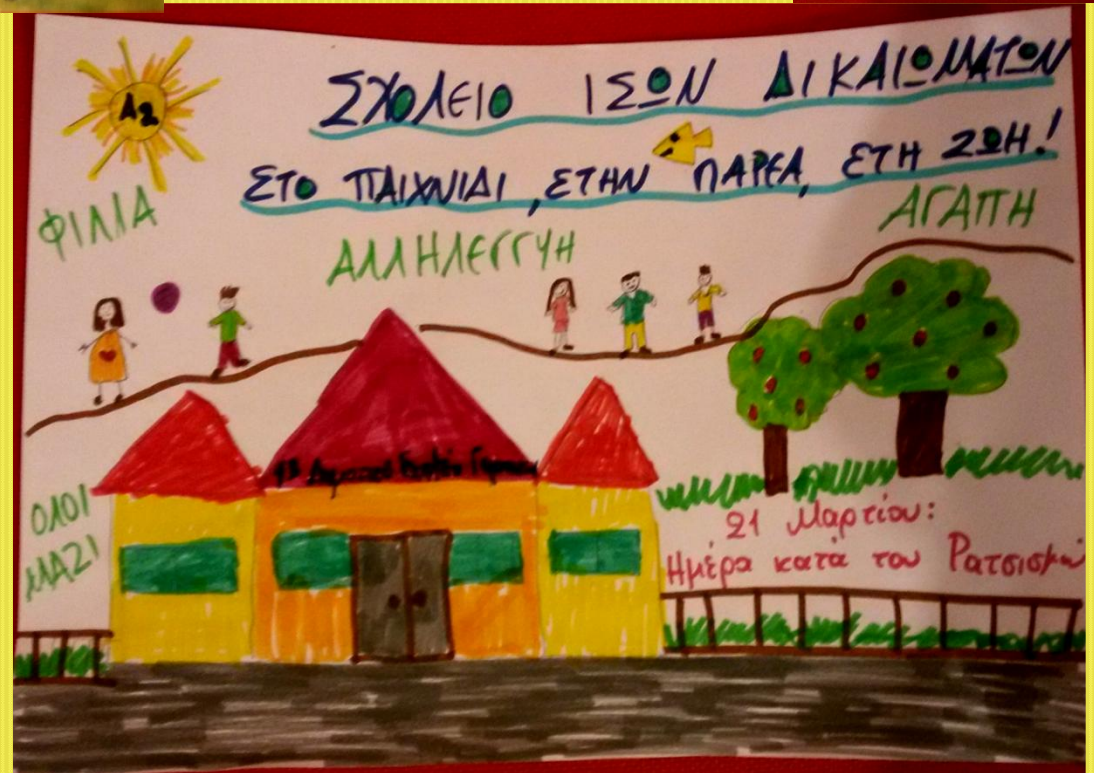 Α2
ΣΧΟΛΕΙΟ ΙΣΩΝ ΔΙΚΑΙΩΜΑΤΩΝ
ΣΤΟ ΠΑΙΧΝΙΔΙ, ΣΤΗΝ ΠΑΡΕΑ, ΣΤΗ ΖΩΗ!
ΦΙΛΙΑ
ΑΛΛΗΛΕΓΓΥΗ
ΑΓΑΠΗ
Δημοτικό Σχολείο
ΟΛΟΙ
ΜΑΖΙ
21 Μαρτίου:
Ημέρα κατά του Ρατσισμού